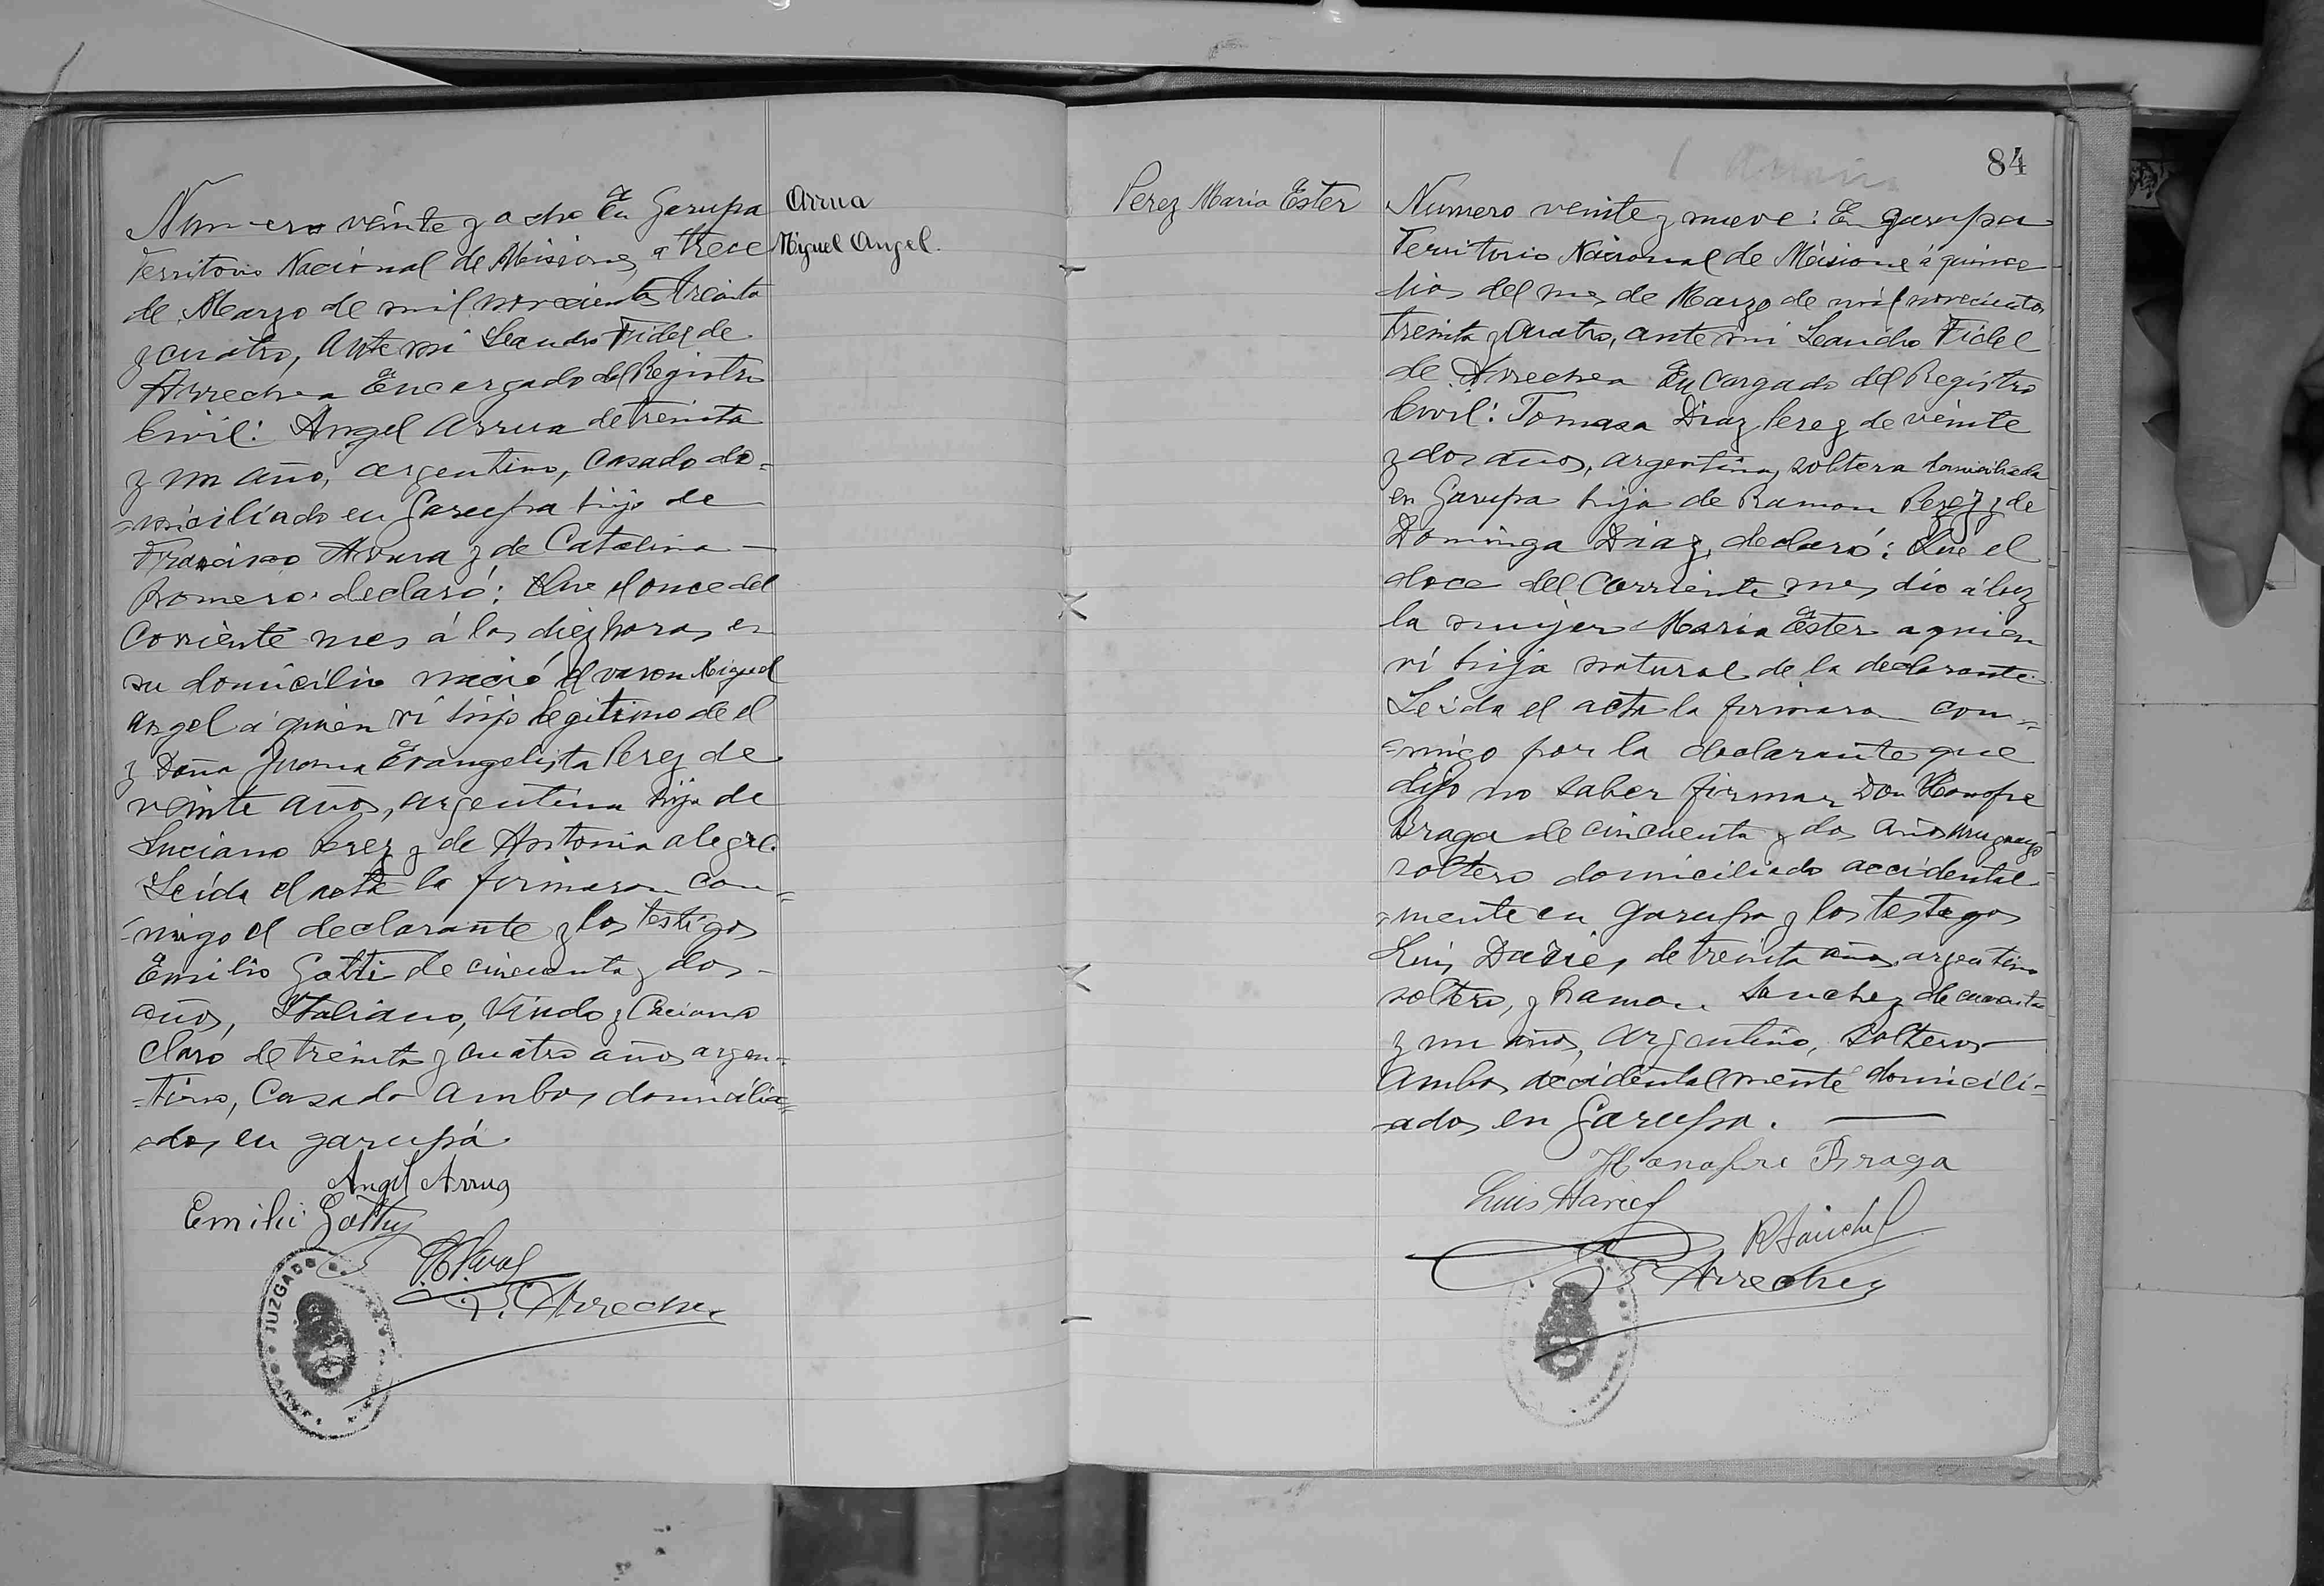 Numero veinte y ocho En Garupa
Territorio Nacional de Misiones, a trece
de Marzo de mil novecientos treinta
y cuatro, Ante mi Leandro Fidel de
Arrechea Encargado del Registro
Civil: Angel Arrua de treinta
y un año, argentino, casado do=
=miciliado en Garupa hijo de
Francisco Arrua y de Catalina —
Romero declaró: Que el once del
Corriente mes á las diez horas en
su domicilio nació el varon Miguel
Angel á quien ví hijo legitimo de el
y Doña Juana Evangelista Perez de
veinte años, argentina hija de
Luciano Perez y de Antonia Alegre.
Leida el acta la firmaron con=
=migo el declarante y los testigos
Emilio Gatti de cincuenta y dos -
años, Italiano, Viudo y
Claro de treinta y cuatro años argen=
=tino, Casado ambos domicilia=
=dos en garupá
Angel Arrua
Emilio Gatty
Arrechea
JUZGADO
Arrua
Miguel Angel.
84
Perez Maria Ester
Numero veinte y nueve: En garupa
Territorio Nacional de Misiones á quince
dias del mes de Marzo de mil novecientos
treinta y cuatro, ante mi Leandro Fidel
de Arrechea Encargado del Registro
Civil: Tomasa Diaz Perez de veinte
y dos años, argentina, soltera domiciliada
en Garupa hija de Ramon Perez y de
Dominga Diaz, declaró: Que el
doce del Corriente mes dío á luz
la mujer Maria Ester a quien
ví hija natural de la declarante.
Leida el acta la firmaron con=
=migo por la declarante que
dijo no saber firmar Don Honofre
Braga de cincuenta y dos años uruguayo
soltero domiciliado accidental
=mente en Garupa y los testigos
Luis de treinta años argentino
soltero, y Ramon Sanchez de cuarenta
y un años, argentino, solteros —
Ambos accidentalmente domicili=
=ados en Garupa. —
Honofre Braga
Luis
R Sanchez
Arrechea